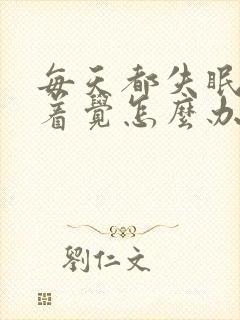 每天都失眠
着覺怎麼办
劉仁文